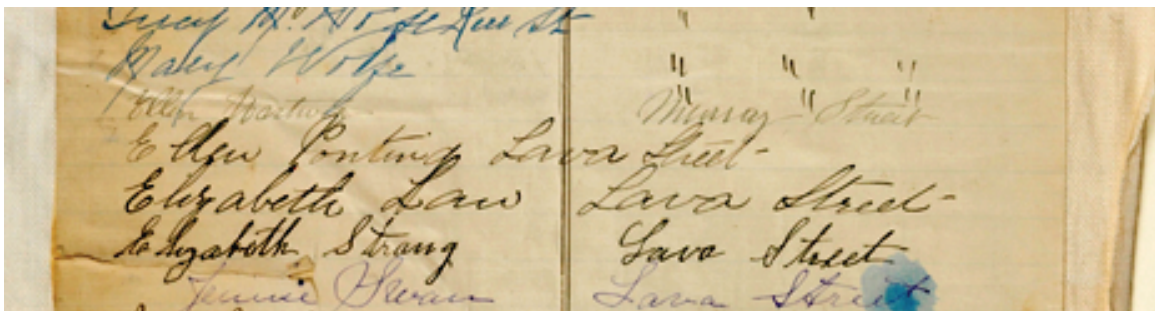 Lucy M. Wolfe Lava St " "
Mary Wolfe " " "
Ellen " " Murray Street
Ellen Ponting Lava Street
Elizabeth Law Lava Street
Elizabeth Strang Lava Street
Jennie Swan Lava Street